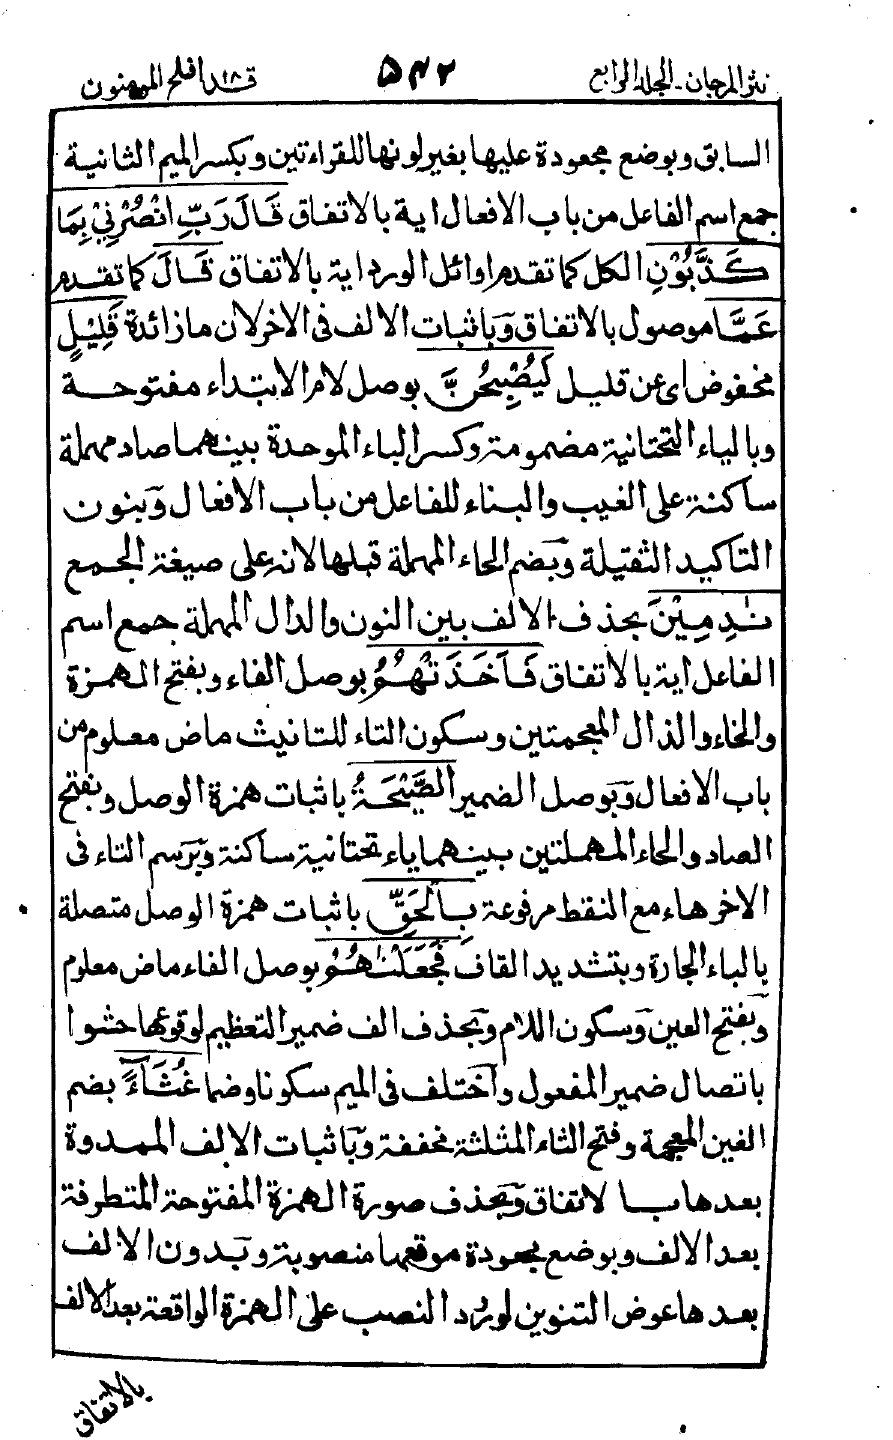 نثر المرجان۔ المجلد الرابع ۵۴۲ قد افلح ۱۸ المومنون
السابق وبوضع مجعودة عليها بغير لونها للقراءتين وبكسر الميم الثانية
جمع اسم الفاعل من باب الافعال اية بالاتفاق قَالَ رَبِّ انْصُرْنِيْ بِمَا
كَذَّبُوْنِ الكل كما تقدم اوائل الورد اية بالاتفاق قَالَ كما تقدم
عَمَّا موصول بالاتفاق وَباثبات الالف فى الاخر لان ما زائدة قَلِيْلٍ
مخفوض اى عن قليل لَيُصْبِحُنَّ بوصل لام الابتداء مفتوحة
وبالياء التحتانية مضمومة وكسر الباء الموحدة بينهما صاد مهملة
ساكنة على الغيب والبناء للفاعل من باب الافعال وَبنون
التاكيد الثقيلة وَبضم الحاء المهملة قبلها لانه على صيغة الجمع
نٰدِمِيْنَ بحذف الالف بين النون والدال المهملة جمع اسم
الفاعل اية بالاتفاق فَاَخَذَتْهُمُ بوصل الفاء وبفتح الهمزة
والخاء والذال المعجمتين وسكون التاء للتانيث ماض معلوم من
باب الافعال وَبوصل الضمير الصَّيْحَةُ باثبات همزة الوصل وبفتح
الصاد والحاء المهملتين بينهما ياء تحتانية ساكنة وَبرسم التاء فى
الاخر هاء مع النقط مرفوعة بِالْحَقِّ باثبات همزة الوصل متصلة
بالباء الجارة وبتشديد القاف فَجَعَلْنٰهُمْ بوصل الفاء ماض معلوم
وَبفتح العين وَسكون اللام وَبحذف الف ضمير التعظيم لوقوعها حشوا
باتصال ضمير المفعول وَاختلف فى الميم سكونا وضما غُثَآءً بضم
الغين المعجمة وفتح الثاء المثلثة مخففة وَباثبات الالف الممدودة
بعدها بالاتفاق وَبحذف صورة الهمزة المفتوحة المتطرفة
بعد الالف وبوضع مجعودة موقعها منصوبة وبَدون الالف
بعدها عوض التنوين لورود النصب على الهمزة الواقعة بعد الالف
بالاتفاق